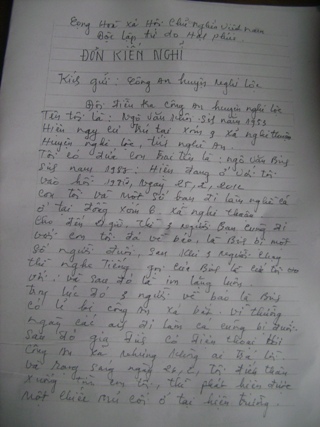 Cộng Hoà xã Hội Chủ Nghĩa Việt Nam
Độc lập tự do Hạnh phúc
ĐƠN KIẾN NGHỊ
Kính gửi: Công An huyện Nghi Lộc
Đội điều tra công an huyện nghi lộc
Tên tôi là: Ngô Văn Sinh năm 1953
Hiện ngụ cư trú tại xóm 9 xã nghi thuận
Huyện nghi lộc, tỉnh nghệ an
Tôi có đứa con trai tên là: ngô văn Bính
Sinh năm 1987: Hiện đang ở với tôi
vào hồi ngày 25, 2, 2012
con tôi và một số bạn đi làm
ở tại đồng xóm xã nghi thuận
Cho đến giờ. Thì 3 người Bạn cùng đi
với con tôi đã về báo, là Bính bị một
số người đuổi, sau khi 3 người chạy
thì nghe tiếng của Bính
với: về sau đó là im lặng luôn
3 người về bảo là Bính
có lẽ bị công an xã bắt. vì thường
ngày các đi làm ca cũng bị đuổi.
sau đó gia đình có điện thoại thì
công an xã nhưng không ai trả lời
và rạng sáng ngày 26, 2, tôi
xuống tìm con tôi, thì phát hiện được
một chiếc mũ cối ở tại hiện trường.